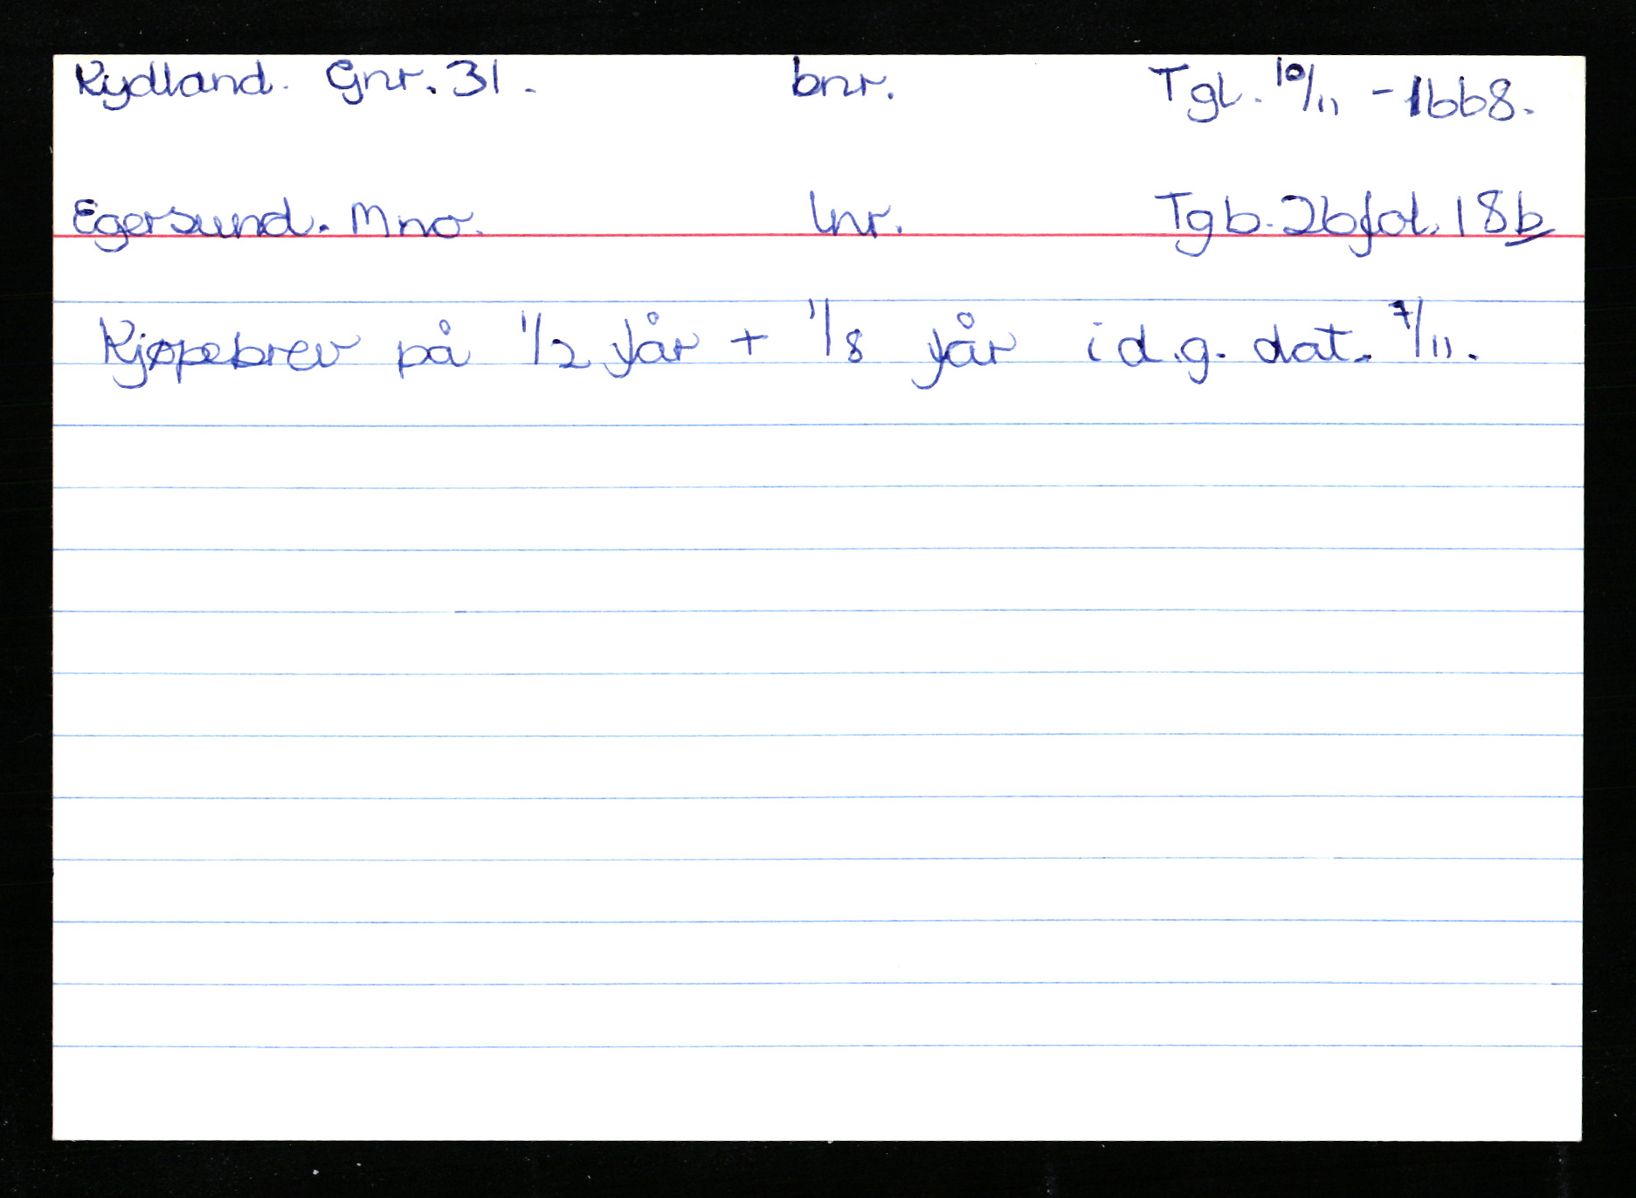 Rydland. Gnr. 31. bnr. Tgl. 10/11 - 1668.
Egersund. Mno. lnr. Tgb. 2b fol. 18b
Kjøpebrev på 1/2 får + 1/8 får i d.g. dat. 7/11.